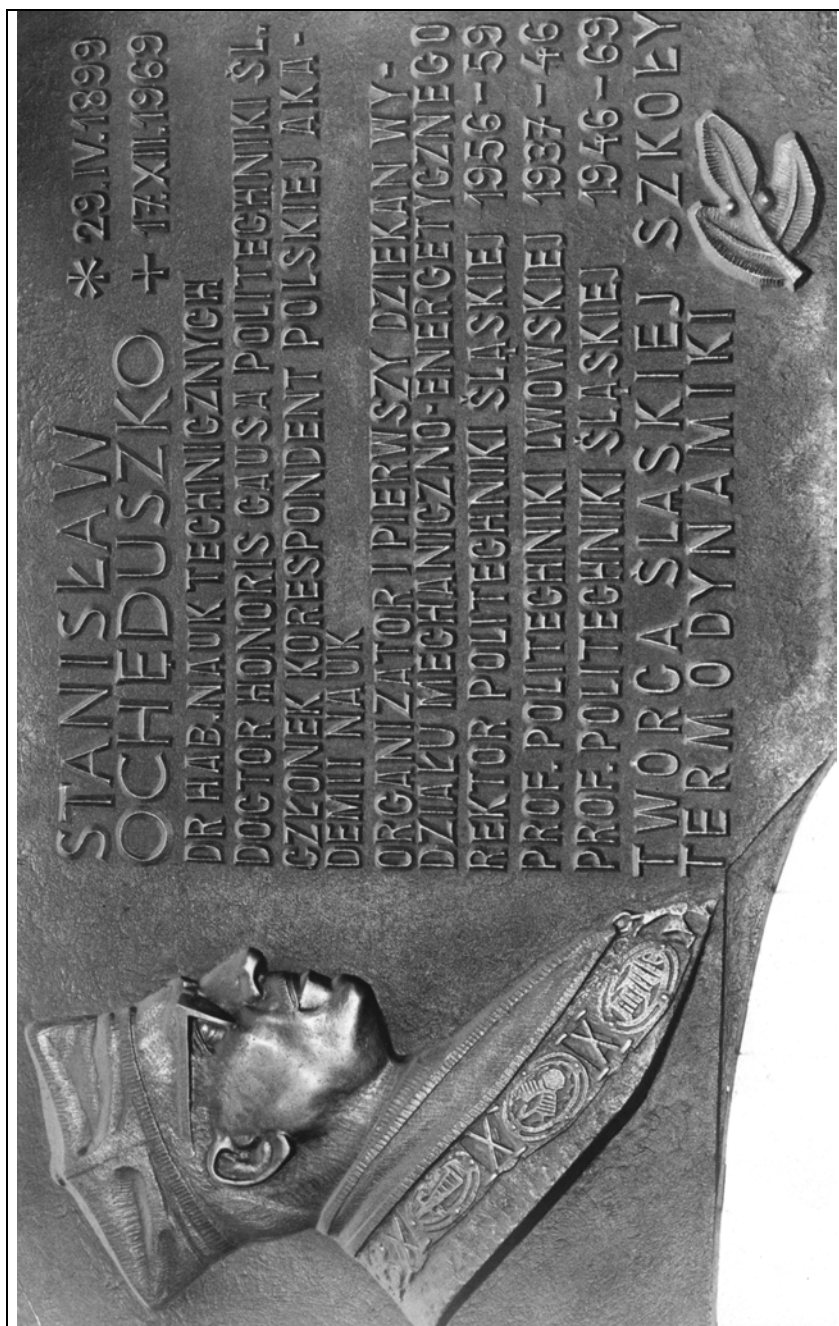 STANISŁAW * 29.IV.1899
OCHĘDUSZKO + 17.XII.1969
DR HAB. NAUK TECHNICZNYCH
DOCTOR HONORIS CAUSA POLITECHNIKI ŚL.
CZŁONEK KORESPONDENT POLSKIEJ AKA-
DEMII NAUK
ORGANIZATOR I PIERWSZY DZIEKAN WY-
DZIAŁU MECHANICZNO-ENERGETYCZNEGO
REKTOR POLITECHNIKI ŚLĄSKIEJ 1956-59
PROF. POLITECHNIKI LWOWSKIEJ 1937-46
PROF. POLITECHNIKI ŚLĄSKIEJ 1946-69
TWÓRCA ŚLĄSKIEJ SZKOŁY
TERMODYNAMIKI